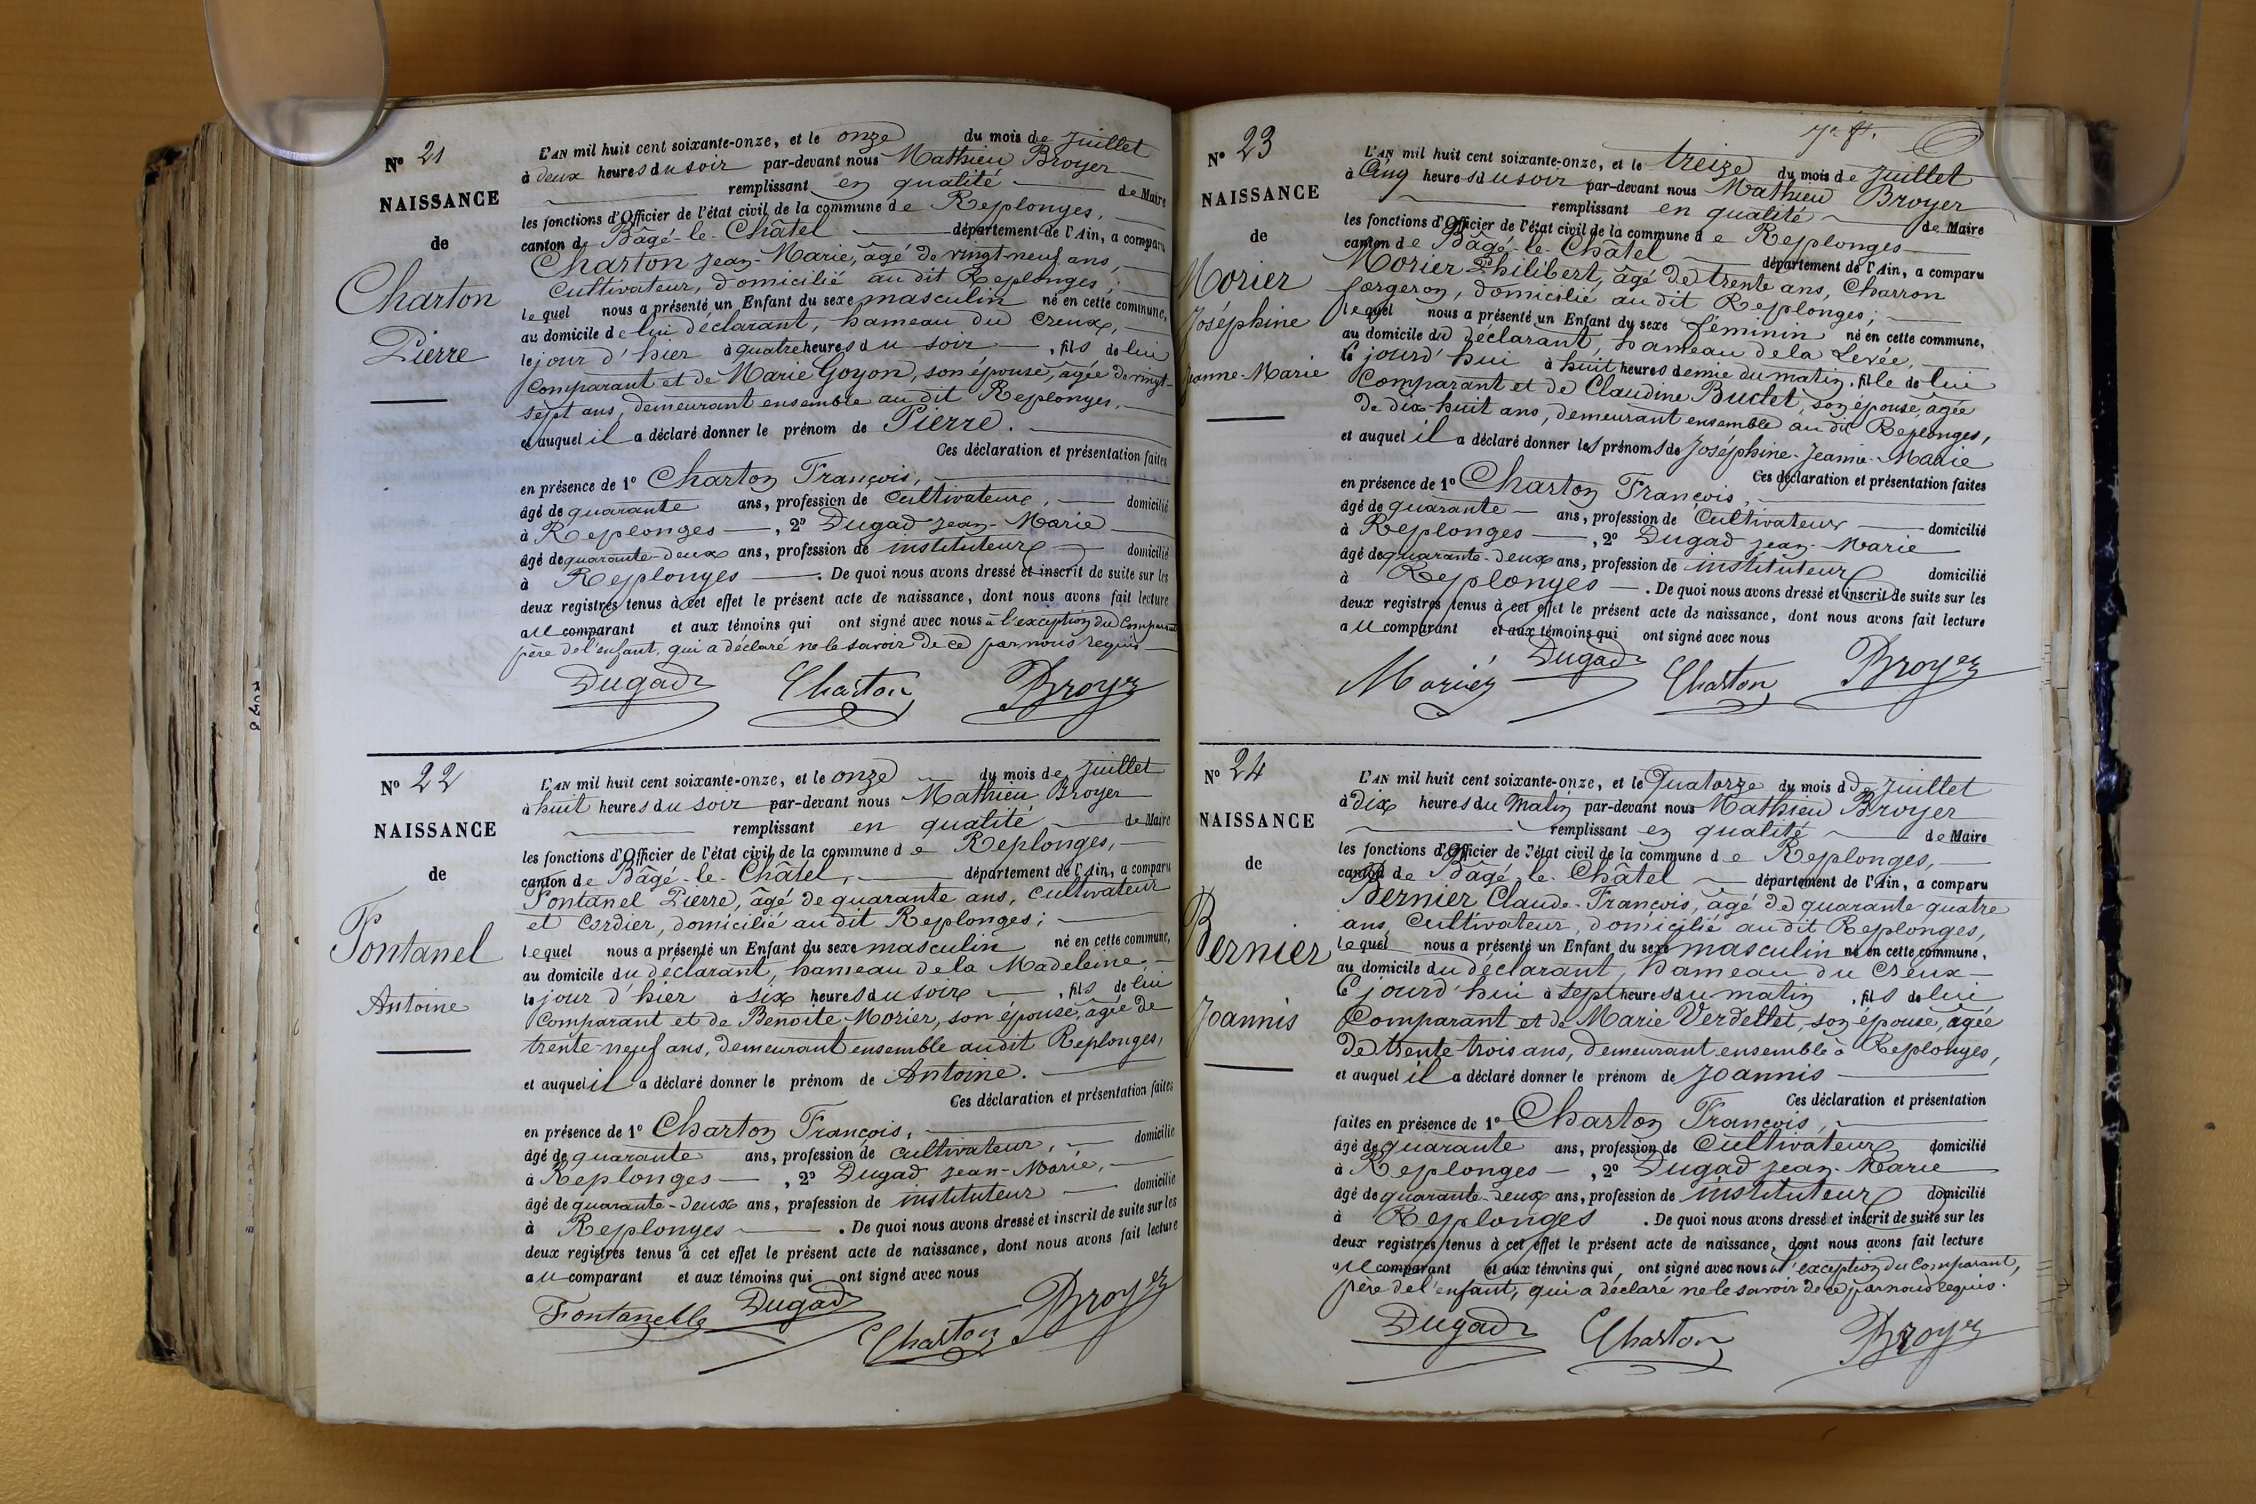 N° 21
NAISSANCE
de
Charton
Pierre
L'AN mil huit cent soixante-onze, et le onze du mois de Juillet
à deux heures du soir par-devant nous Mathieu Broyer
remplissant en qualité de Maire
les fonctions d'Officier de l'état civil de la commune de Replonges,
canton de Bâgé-le-Châtel département de l'Ain, a comparu
Charton Jean-Marie, âgé de vingt-neuf ans,
cultivateur, domicilié au dit Replonges;
lequel nous a présenté un Enfant du sexe masculin né en cette commune,
au domicile de lui déclarant, hameau du Creux,
le jour d'hier à quatre heures du soir, fils de lui
comparant et de Marie Goyon, son épouse, âgée de vingt-
sept ans, demeurant ensemble au dit Replonges,
et auquel il a déclaré donner le prénom de Pierre.
Ces déclaration et présentation faites
en présence de 1° Charton François,
âgé de quarante ans, profession de cultivateur, domicilié
à Replonges, 2° Dugad Jean-Marie
âgé de quarante-deux ans, profession de instituteur domicilié
à Replonges. De quoi nous avons dressé et inscrit de suite sur les
deux registres tenus à cet effet le présent acte de naissance, dont nous avons fait lecture
au comparant et aux témoins qui ont signé avec nous à l'exception du comparant
père de l'enfant, qui a déclaré ne le savoir de ce par nous requis
Dugad Charton Broyer
N° 22
NAISSANCE
de
Fontanel
Antoine
L'AN mil huit cent soixante-onze, et le onze du mois de Juillet
à huit heures du soir par-devant nous Mathieu Broyer
remplissant en qualité de Maire
les fonctions d'Officier de l'état civil de la commune de Replonges,
canton de Bâgé-le-Châtel, département de l'Ain, a comparu
Fontanel Pierre, âgé de quarante ans, cultivateur
et cordier, domicilié au dit Replonges;
lequel nous a présenté un Enfant du sexe masculin né en cette commune,
au domicile du déclarant, hameau de la Madeleine,
le jour d'hier à six heures du soir, fils de lui
comparant et de Benoite Morier, son épouse, âgée de
trente-neuf ans, demeurant ensemble au dit Replonges,
et auquel il a déclaré donner le prénom de Antoine.
Ces déclaration et présentation faites
en présence de 1° Charton François,
âgé de quarante ans, profession de cultivateur, domicilié
à Replonges, 2° Dugad Jean-Marie,
âgé de quarante-deux ans, profession de instituteur domicilié
à Replonges. De quoi nous avons dressé et inscrit de suite sur les
deux registres tenus à cet effet le présent acte de naissance, dont nous avons fait lecture
au comparant et aux témoins qui ont signé avec nous
Fontanelle Dugad Charton Broyer
N° 23
NAISSANCE
de
Morier
Joséphine
Jeanne-Marie
L'AN mil huit cent soixante-onze, et le treize du mois de Juillet
à Cinq heures du soir par-devant nous Mathieu Broyer
remplissant en qualité de Maire
les fonctions d'Officier de l'état civil de la commune de Replonges
canton de Bâgé-le-Châtel département de l'Ain, a comparu
Morier Philibert, âgé de trente ans, Charron
forgeron, domicilié au dit Replonges;
lequel nous a présenté un Enfant du sexe féminin né en cette commune,
au domicile du déclarant, hameau de la Levée,
le jourd'hui à huit heures demie du matin, fille de lui
comparant et de Claudine Buclet, son épouse, âgée
de dix-huit ans, demeurant ensemble au dit Replonges,
et auquel il a déclaré donner les prénoms de Joséphine-Jeanne-Marie
Ces déclaration et présentation faites
en présence de 1° Charton François,
âgé de quarante ans, profession de cultivateur domicilié
à Replonges, 2° Dugad Jean-Marie
âgé de quarante-deux ans, profession de instituteur domicilié
à Replonges. De quoi nous avons dressé et inscrit de suite sur les
deux registres tenus à cet effet le présent acte de naissance, dont nous avons fait lecture
au comparant et aux témoins qui ont signé avec nous
Morier Dugad Charton Broyer
N° 24
NAISSANCE
de
Bernier
Joannis
L'AN mil huit cent soixante-onze, et le Quatorze du mois de Juillet
à dix heures du Matin par-devant nous Mathieu Broyer
remplissant en qualité de Maire
les fonctions d'Officier de l'état civil de la commune de Replonges,
canton de Bâgé-le-Châtel département de l'Ain, a comparu
Bernier Claude-François, âgé de quarante quatre
ans, cultivateur, domicilié au dit Replonges,
lequel nous a présenté un Enfant du sexe masculin né en cette commune,
au domicile du déclarant, hameau du Creux
le jourd'hui à sept heures du matin, fils de lui
Comparant et de Marie Verdellet, son épouse, âgée
de trente trois ans, demeurant ensemble à Replonges,
et auquel il a déclaré donner le prénom de Joannis
Ces déclaration et présentation
faites en présence de 1° Charton François,
âgé de quarante ans, profession de cultivateur domicilié
à Replonges, 2° Dugad Jean-Marie
âgé de quarante-deux ans, profession de instituteur domicilié
à Replonges. De quoi nous avons dressé et inscrit de suite sur les
deux registres tenus à cet effet le présent acte de naissance, dont nous avons fait lecture
au comparant et aux témoins qui ont signé avec nous à l'exception du comparant,
père de l'enfant, qui a déclaré ne le savoir de ce par nous requis.
Dugad Charton Broyer